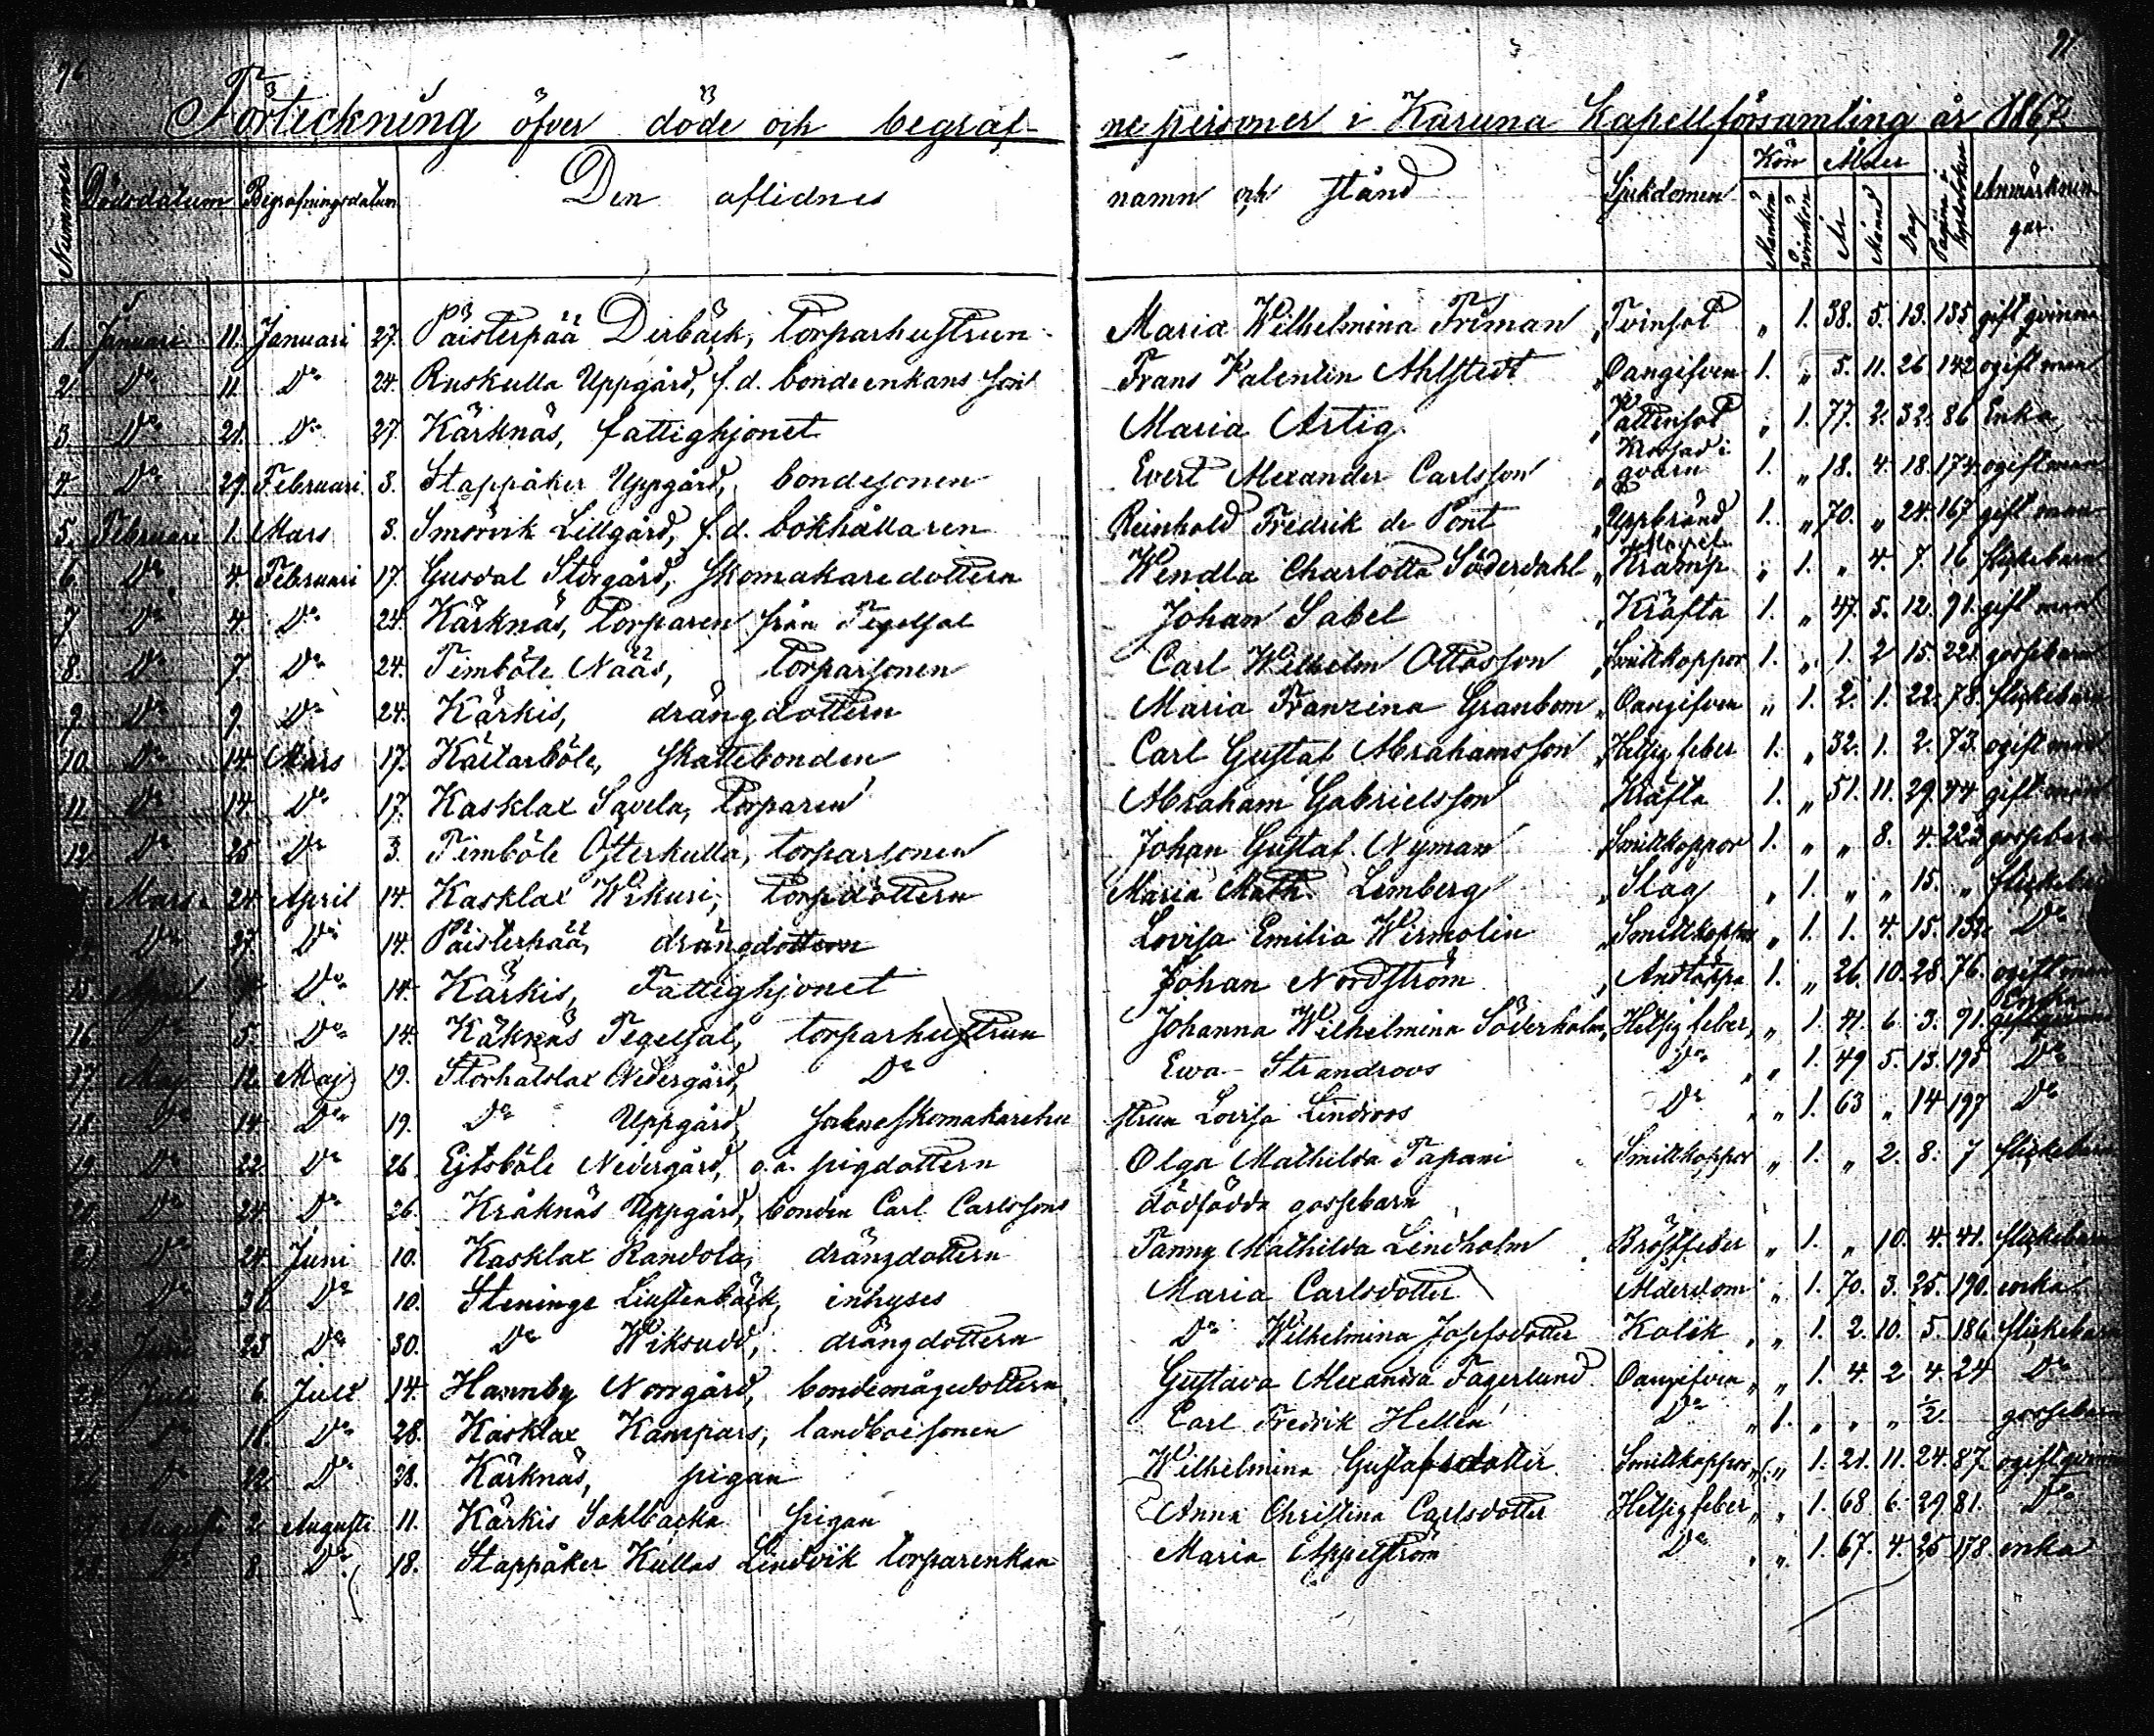 96
97
Förteckning öfver döde och begraf- ne personer i Karuna Kapellförsamling år 1867.
Nummer Dödsdatum Begrafningsdatum Den aflidnes namn och stånd Sjukdomen Kön Ålder Anmärknin-
gar.
Mankön Qvinkön År Månad Dag Pagina
1. Januari 11. Januari 27. Päisterpää Derbäck, torparhustrun Maria Wilhelmina Friman Tvinsot " 1. 38. 5. 13. 135 gift qvinna
2. Do 11. Do 24. Ruskulla Uppgård, f.d. bondeenkans son Frans Valentin Ahlstedt Oangifven 1. " 5. 11. 26. 142 ogift man
3. Do 21. Do 27. Kärknäs, fattighjonet Maria Artig Vattensot " 1. 77. 2. 32. 86 Enka
4. Do 29. Februari 3. Stappåker Uppgård, bondesonen Evert Alexander Carlsson Krossad i qvarn 1. " 18. 4. 18. 174. ogift man
5. Februari 1. Mars 3. Smörvik Lillgård, f.d. bokhållaren Reinhold Fredrik de Pont Uppbränd 1. " 70. " 24. 167 gift man
6. Do 4. Februari 17. Gusdal Storgård, skomakaredottern Wendla Charlotta Söderdahl Kramp " 1. " 4. 7. 16 flickebarn
7 Do 4. Do 24. Kärknäs, torparen från Tegelsal Johan Sabel Kräfta 1. " 47. 5. 12. 91. gift man
8. Do 7. Do 24. Timböle Nääs, torparsonen Carl Wilhelm Ottosson Smittkoppor 1. " 1. 2 15. 221. gossebarn
9. Do 9. Do 24. Kärkis, drängdottern Maria Franzina Granbom Oangifven " 1. 2. 1. 22. 78. flickebarn
10. Do 14. Mars 17. Käitarböle, skattebonden Carl Gustaf Abrahamsson Hetsig feber 1. " 32. 1. 2. 73. ogift man
11. Do 14. Do 17. Kasklax Savela, torparen Abraham Gabrielsson Kräfta 1. " 51. 11. 29. 44 gift man
12. Do 25 Do 3. Timböle Österkulla, torparsonen Johan Gustaf Nyman Smittkoppor 1. " " 8. 4. 222 gossebarn
Mars 24. April 14. Kasklax Wikuri, torpdottern Maria Math. Lemberg Slag " 1. " " 15. " flickebarn
Do 27. Do 14. Päisterpää, drängdottern Lovisa Emilia Wirmolin Smittkoppor " 1. 1. 4. 15. 132. Do
15. April Do 14. Kärkis, Fattighjonet Johan Nordström Andtäppa 1. " 26. 10. 28. 76. ogift man
16. Do 5. Do 14. Käknäs Tegelsal, torparhustrun Johanna Wilhelmina Söderholm Hetsig feber " 1. 41. 6. 3. 91. Enka
17. Maj 12. Maj 19. Storhalslax Nedergård, Do Ewa Strandroos Do " 1. 49 5. 13. 195 Do
18. Do 14. Do 19. Do Uppgård, sokneskomakarehu strun Lovisa Lindroos Do " 1. 63 " 14 197 Do
19. Do 22. Do 26. Ejtsböle Nedergård, o.ä. pigdottern Olga Mathilda Tapani Smittkoppor " 1. " 2. 8. 7 flickebarn
20. Do 24. Do 26. Kråknäs Uppgård, bonden Carl Carlssons dödfödda gossebarn
21. Do 24. Juni 10. Kasklax Randola, drängdottern Fanny Mathilda Lindholm Bröstfeber " 1. " 10. 4. 41. flickebarn
22. Do 31. Do 10. Steninge Liustenbäck, inhyses Maria Carlsdotter Ålderdom " 1. 70. 3. 25. 190. enka
23. Juni 23 Do 30. Do Wiksudd, drängdottern Do Wilhelmina Josefsdotter Kolik " 1. 2. 10. 5. 186. flickebarn
24. Juli 6. Juli 14. Hamnby Norrgård, bondemågedottern Gustava Alexandra Fagerlund Oangifven " 1. 4. 2 4. 24 Do
25. Do 18. Do 28. Kasklax Kampars, landboesonen Carl Fredrik Hellén Do 1. " " " 1/2 gossebarn
Do Do 28. Kärknäs, pigan Wilhelmina Gustafsdotter Smittkoppor " 1. 21. 11. 24. 87. ogift qvinna
Augusti 2. Augusti 11. Kärkis Sahlbacka pigan Anna Christina Carlsdotter Hetsig feber " 1. 68 6. 29 81. Do
28. Do 8. Do 18. Stappåker Kullas Lindvik torparenkan Maria Appelström Do " 1. 67. 4. 25 178. enka